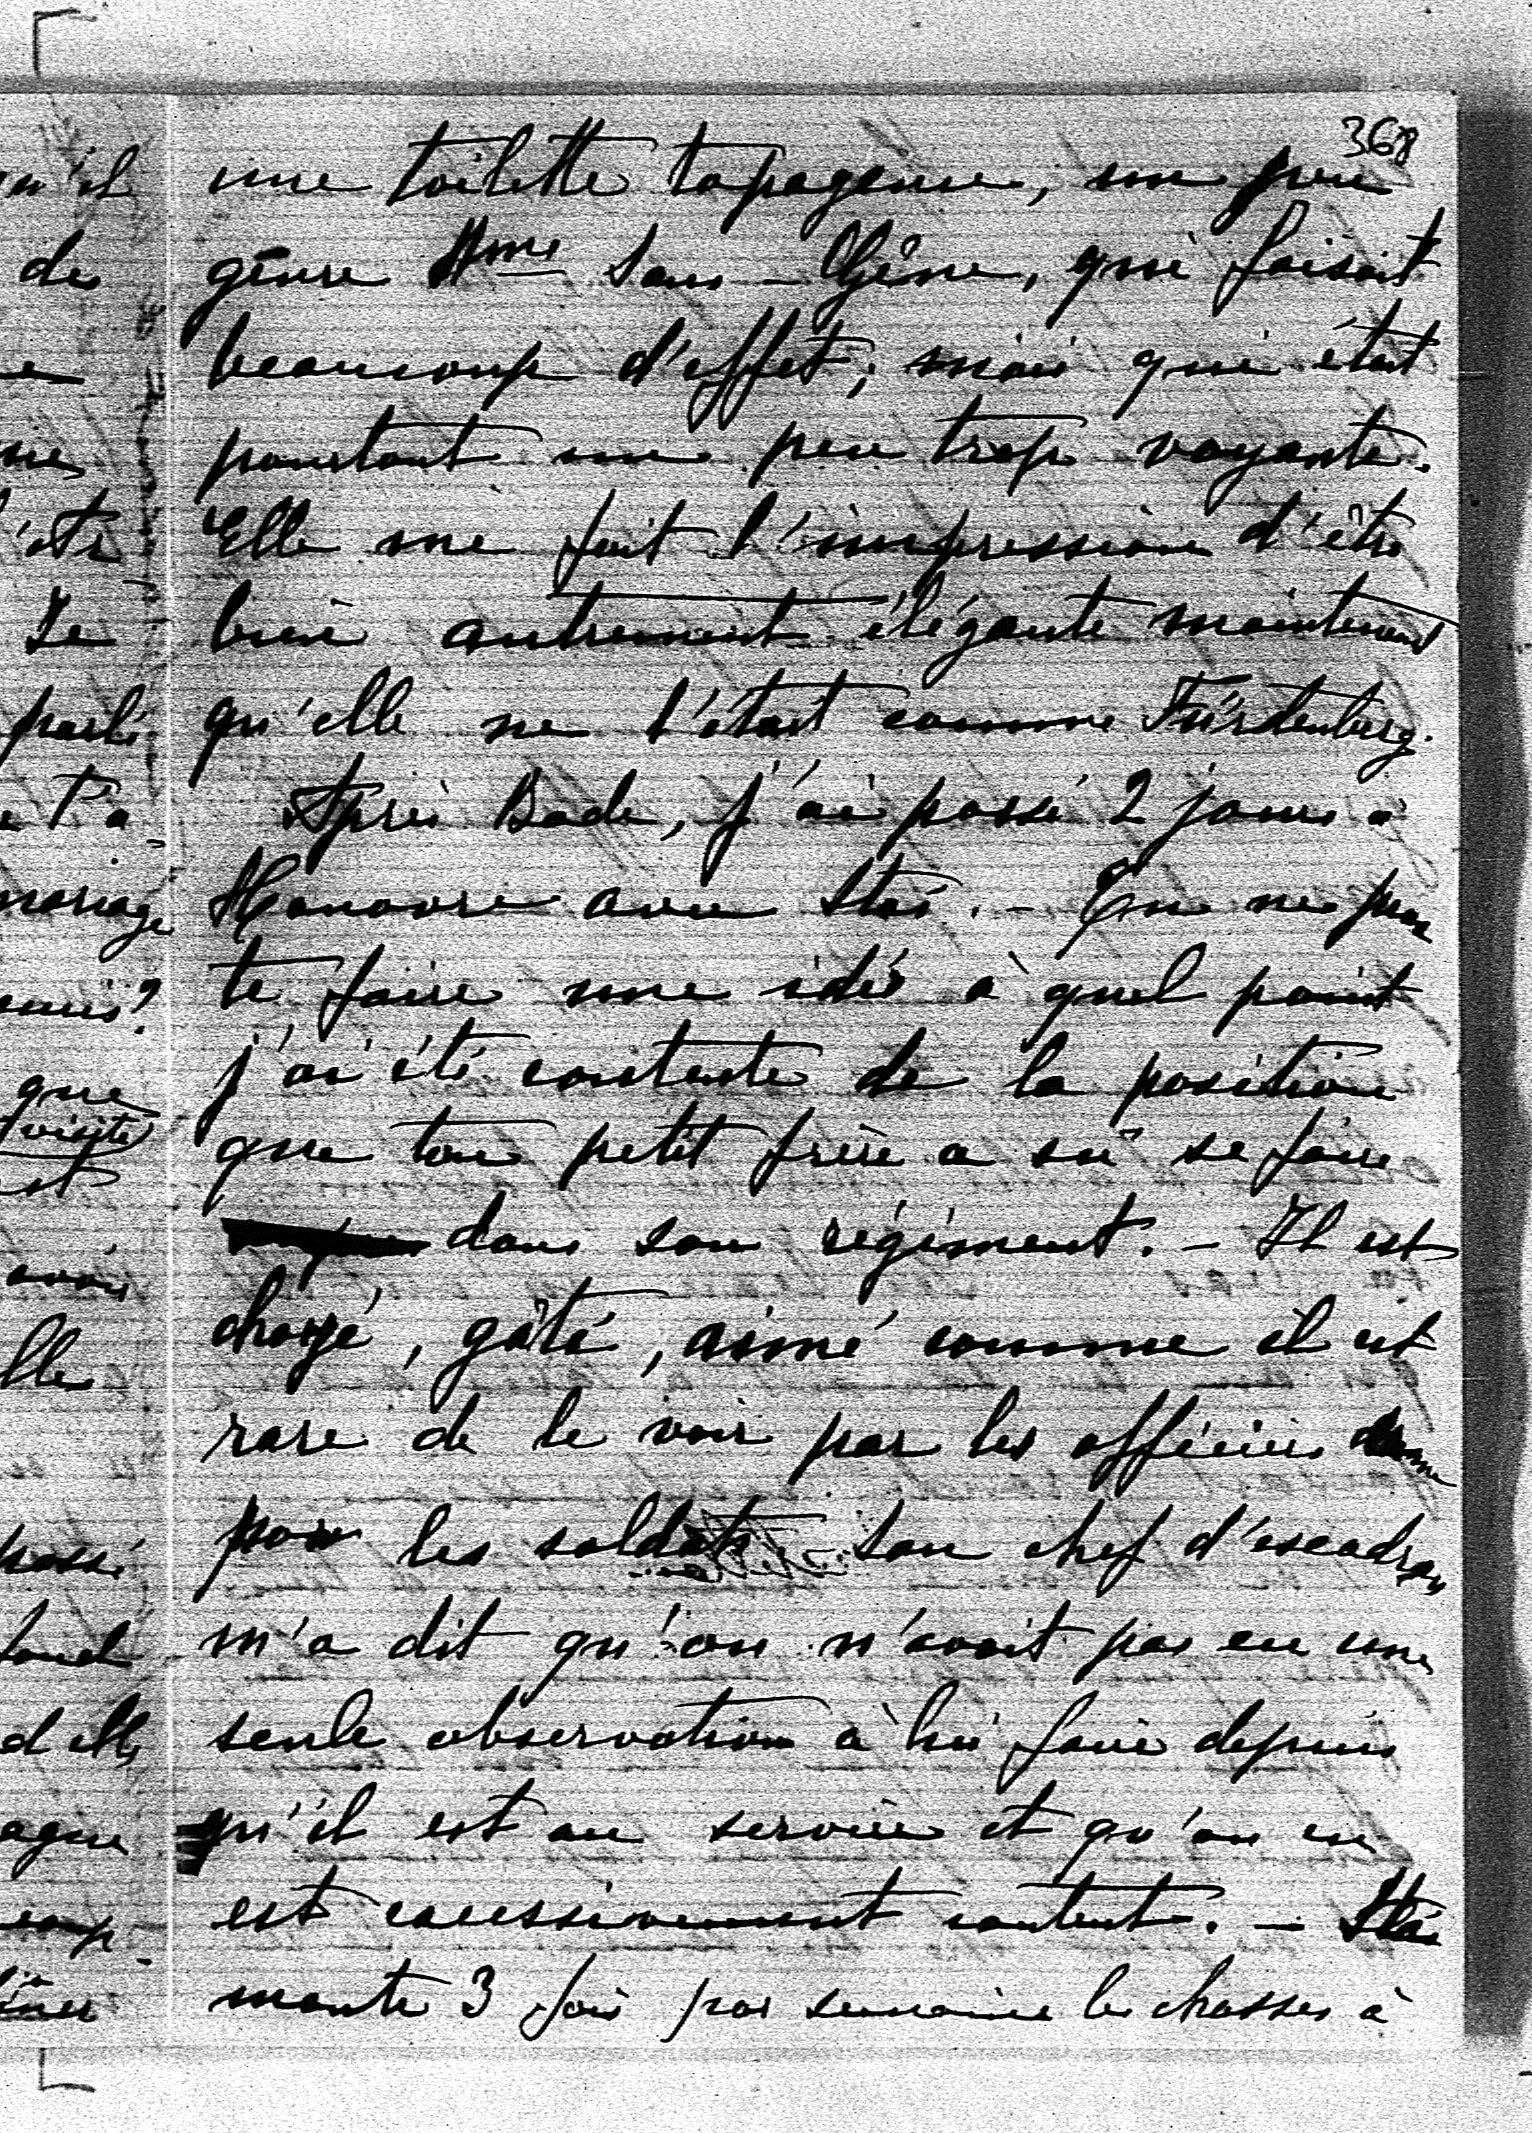 368
une toilette tapageuse, un peu
genre Mme Sans-Gêne, qui faisait
beaucoup d'effet, mais qui était
pourtant un peu trop voyante.
Elle me fait l'impression d'être
bien autrement élégante maintenant
qu'elle ne l'était comme Fürstenberg.
Après Bade, j'ai passé 2 jours à
Hanovre avec Stás. - Tu ne peux
te faire une idée à quel point
j'ai été contente de la position
que ton petit frère a su se faire
dans son régiment. - Il est
choyé, gâté, aimé comme il est
rare de le voir par les officiers comme
par les soldats. Son chef d'escadron
m'a dit qu'on n'avait pas eu une
seule observation à lui faire depuis
qu'il est au service et qu'on en
est excessivement content. - Stás
monte 3 fois par semaine les chasses à
qu'il
de
parlé
Je
t'a
mariage
que
visite
avoir
elle
passé
d'elle